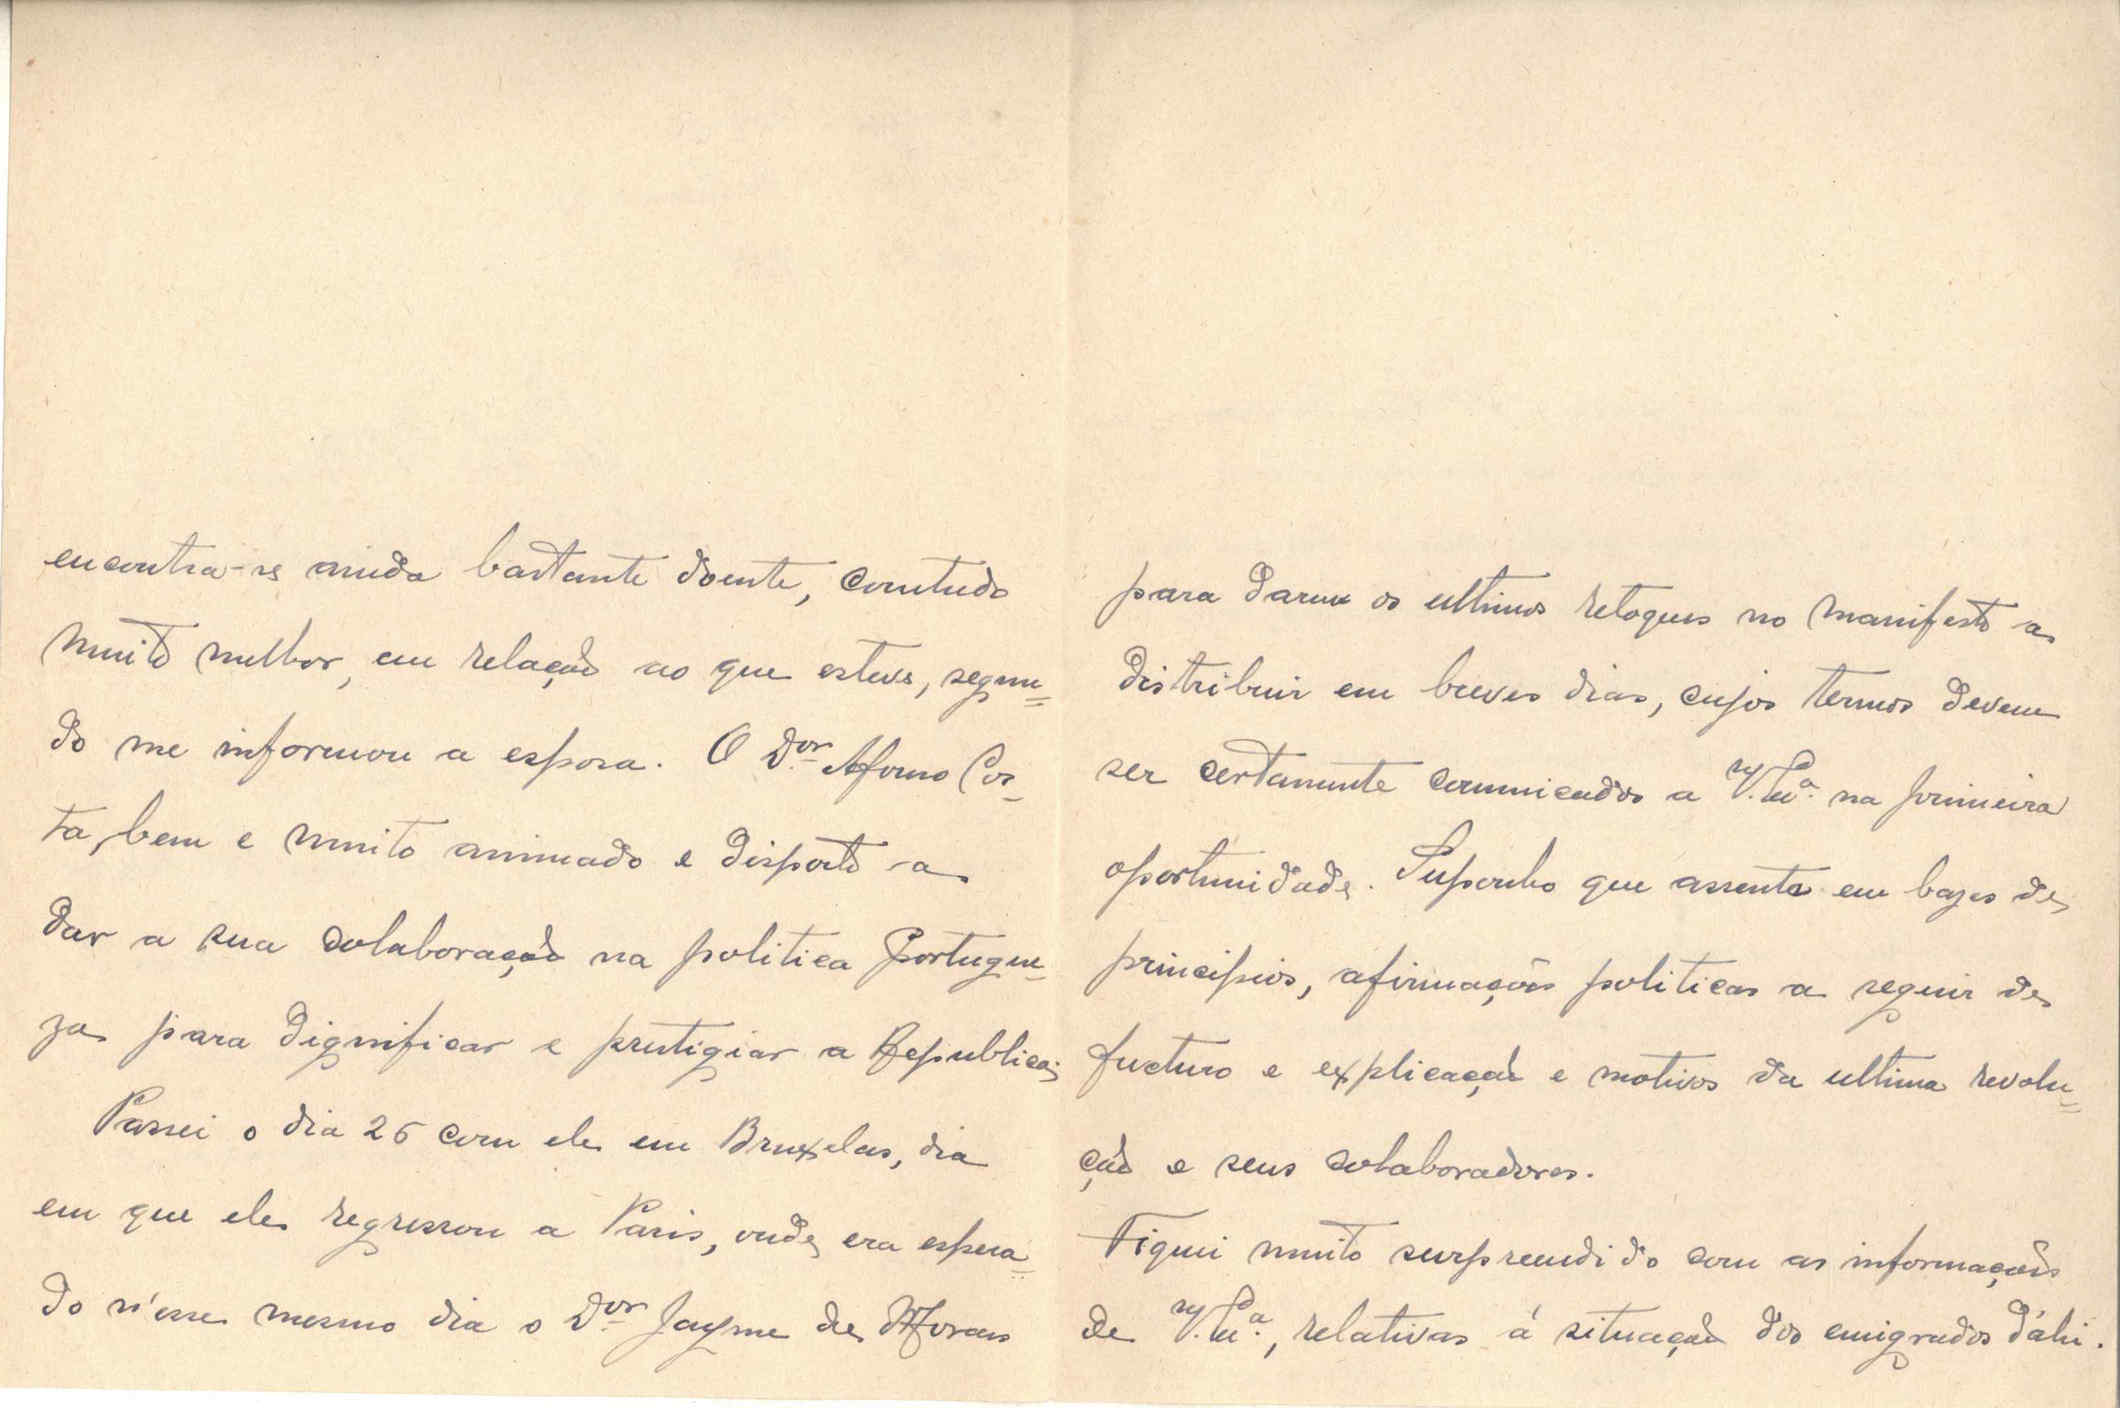 encontra-se ainda bastante doente, comtudo
muito melhor, em relação ao que esteve, segun=
do me informou a esposa. O Dor. Afonso Cos-
ta, bem e muito animado e disposto a
dar a sua colaboração na politica Portugue=
za para dignificar e prestigiar a Republica;
Passei o dia 26 com ele em Bruxelas, dia
em que ele regressou a Paris, onde era espera=
do n'esse mesmo dia o Dor. Jayme de Moraes
para darem os ultimos retoques no manifesto a
distribuir em breves dias, cujos termos devem
ser certamente comunicados a V. Exa. na primeira
oportunidade. Suponho que assenta em bazes de
principios, afirmações politicas a seguir de
fucturo e explicação e motivos da ultima revolu=
ção e seus colaboradores.
Fiquei muito surpreendido com as informações
de V. Exa., relativas á situação dos emigrados d'ahi.